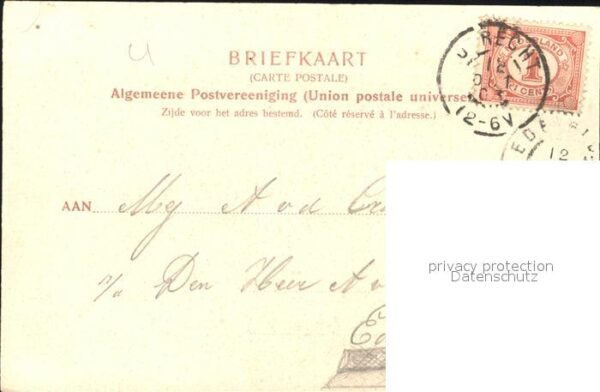 BRIEFKAART
(CARTE POSTALE)
Algemeene Postvereeniging (Union postale universe
Zijde voor het adres bestemd. (Côté réservé à l'adresse.)
RECHT
12-6V
1
(1 CENT)
12
AAN Mej A v d
privacy protection
Datenschutz
Den Heer A v